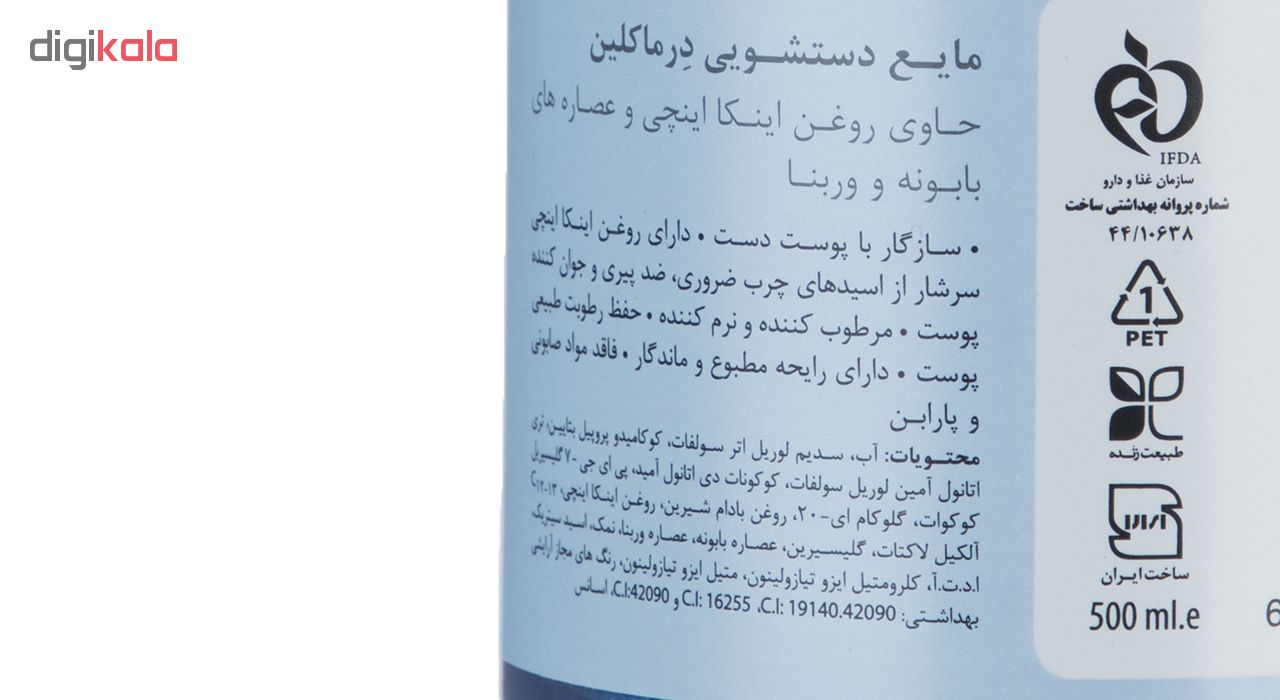 digikala
مایع دستشویی دِرماکلین
حاوی روغن اینکا اینچی و عصاره های
بابونه و وربنا
• سازگار با پوست دست • دارای روغن اینکا اینچی
سرشار از اسیدهای چرب ضروری، ضد پیری و جوان کننده
پوست • مرطوب کننده و نرم کننده • حفظ رطوبت طبیعی
پوست • دارای رایحه مطبوع و ماندگار • فاقد مواد صابونی
و پارابن
محتویات: آب، سدیم لوریل اتر سولفات، کوکامیدو پروپیل بتایین، تری
اتانول آمین لوریل سولفات، کوکونات دی اتانول آمید، پی ای جی-۷ گلیسیریل
کوکوات، گلوکام ای-۲۰، روغن بادام شیرین، روغن اینکا اینچی، C۱۲-۱۳
آلکیل لاکتات، گلیسیرین، عصاره بابونه، عصاره وربنا، نمک، اسید سیتریک،
ا.د.ت.آ، کلرومتیل ایزو تیازولینون، متیل ایزو تیازولینون، رنگ های مجاز آرایشی
بهداشتی: C.I: 19140.42090، C.I: 16255 و C.I:42090، اسانس
IFDA
سازمان غذا و دارو
شماره پروانه بهداشتی ساخت
۴۴/۱۰۶۳۸
1
PET
طبیعت زنده
ایران
ساخت ایران
500 ml.e
6